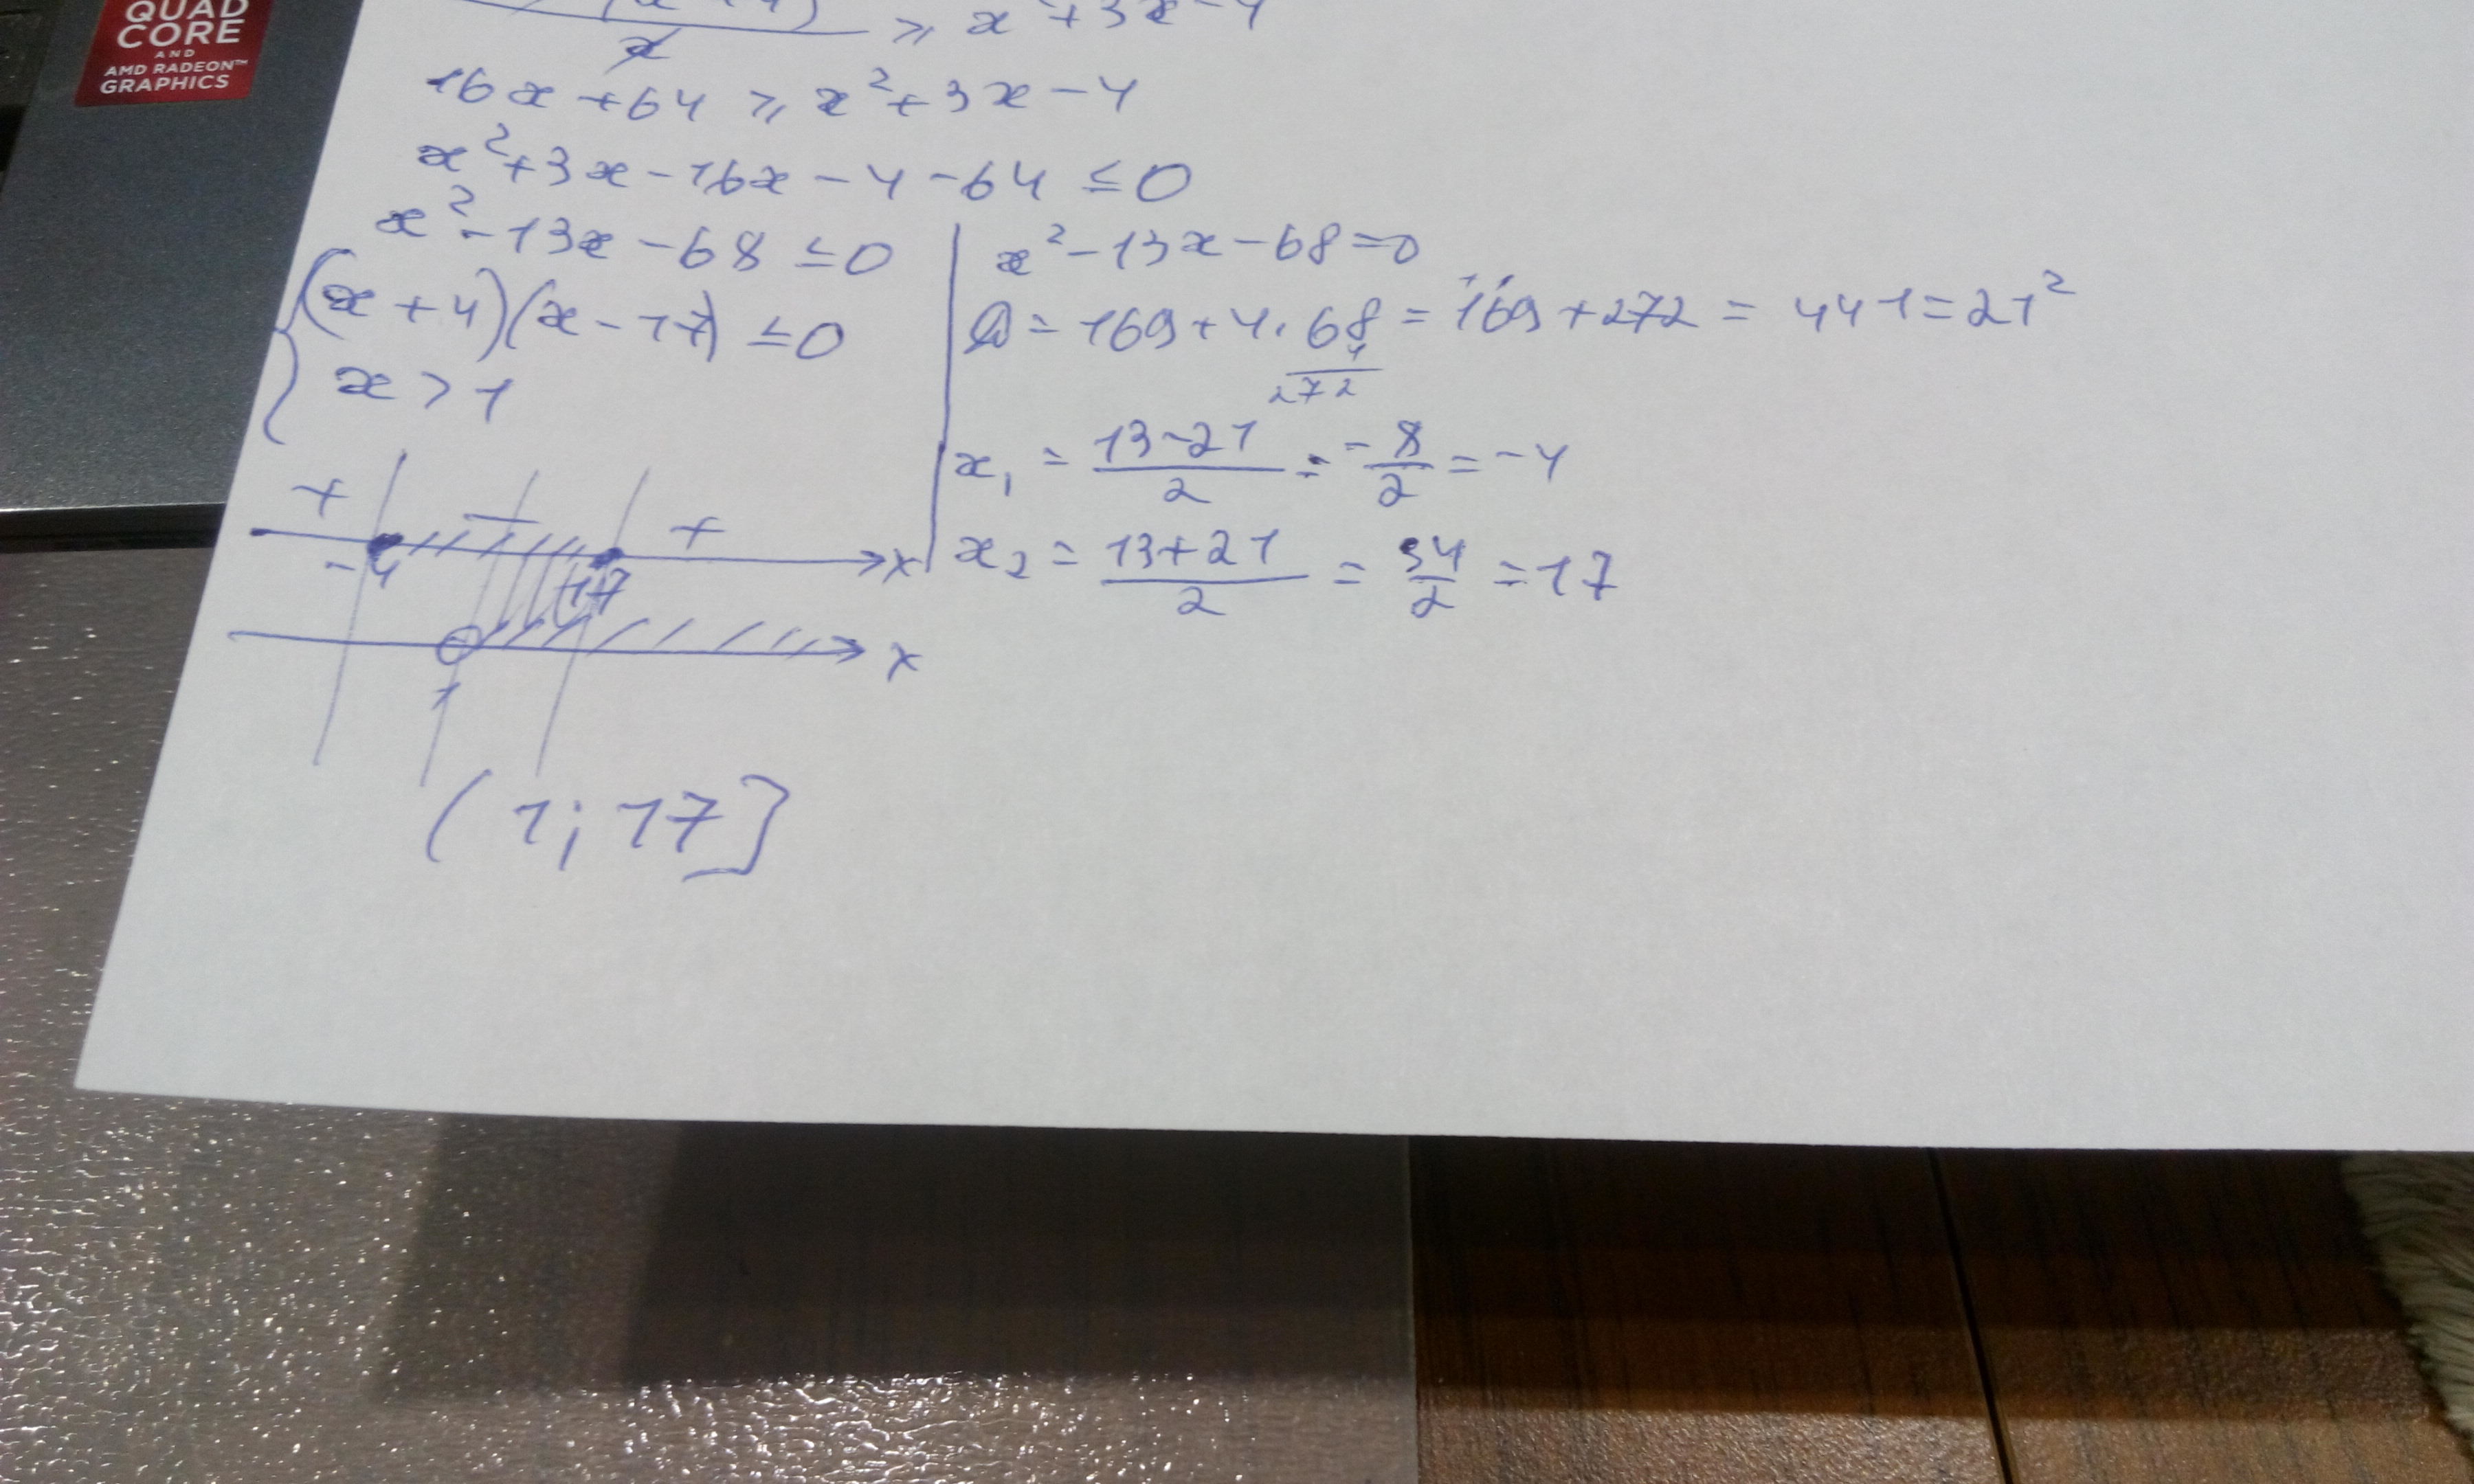 QUAD
CORE
AND
AMD RADEON™
GRAPHICS
x ⩾ x + 3x - 4
16x + 64 ⩾ x² + 3x - 4
x² + 3x - 16x - 4 - 64 ≤ 0
x² - 13x - 68 ≤ 0
(x + 4)(x - 17) ≤ 0
x > 1
+ - +
-4 17 x
1 x
(1; 17]
x² - 13x - 68 = 0
D = 169 + 4 · 68 = 169 + 272 = 441 = 21²
4
272
x₁ = 13-21/2 = -8/2 = -4
x₂ = 13+21/2 = 34/2 = 17